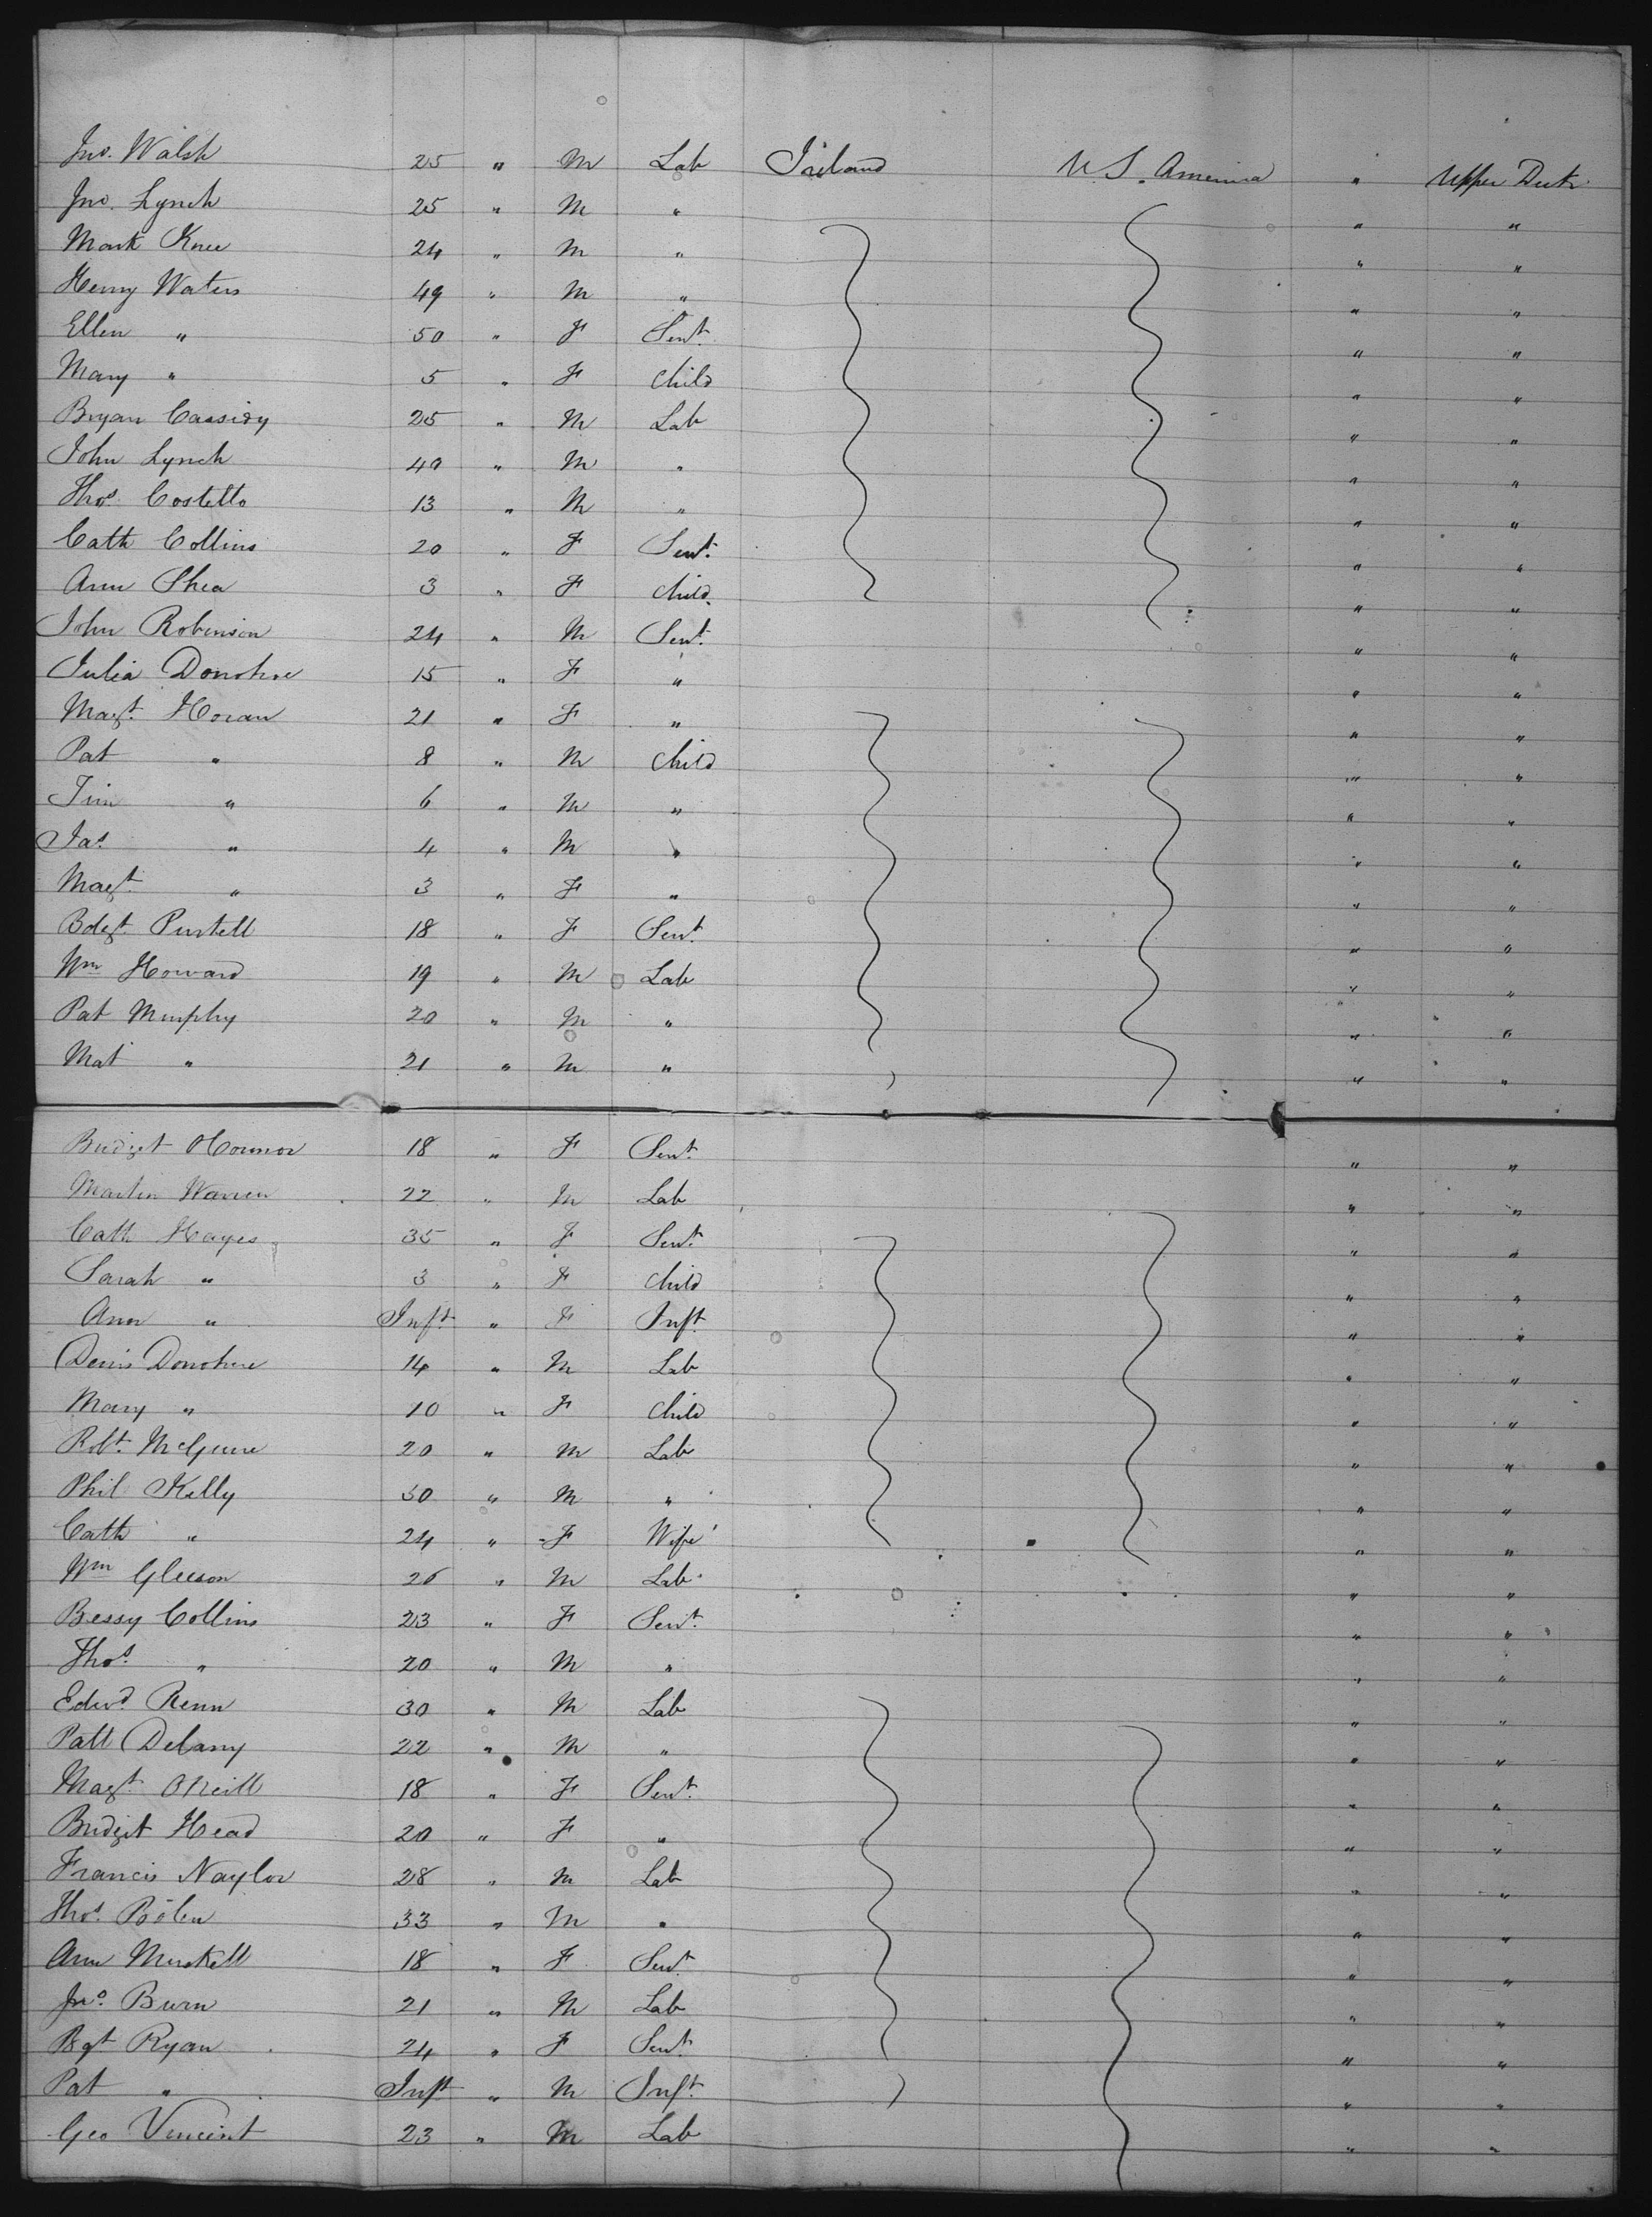 Jno. Walsh 25 " M Lab Ireland U.S. America " Upper Deck
Jno. Lynch 25 " M " " "
Mark Knee 24 " M " " "
Henry Waters 49 " M " " "
Ellen " 50 " F Servt. " "
Mary " 5 " F Child " "
Bryan Cassidy 25 " M Lab " "
John Lynch 40 " M " " "
Thos. Costello 13 " M " " "
Cath Collins 20 " F Servt. " "
Ann Shea 3 " F Child " "
John Robinson 24 " M Servt. " "
Julia Donohoe 15 " F " " "
Magt. Horan 21 " F " " "
Pat " 8 " M Child " "
Tim " 6 " M " " "
Jas. " 4 " M " " "
Magt. " 3 " F " " "
Bdgt. Purtell 18 " F Servt. " "
Wm Howard 19 " M Lab " "
Pat Murphy 20 " M " " "
Mat " 21 " M " " "
Bridget OConnor 18 " F Servt. " "
Martin Warren 22 " M Lab " "
Cath Hayes 35 " F Servt. " "
Sarah " 3 " F Child " "
Ann " Inft " F Inft. " "
Denis Donohue 14 " M Lab " "
Mary " 10 " F Child " "
Robt. McGuire 20 " M Lab " "
Phil Kelly 30 " M " " "
Cath " 24 " F Wife " "
Wm Gleeson 26 " M Lab " "
Bessy Collins 23 " F Servt. " "
Thos. " 20 " M " " "
Edwd. Renn 30 " M Lab " "
Patt Delany 22 " M " " "
Magt. ONeill 18 " F Servt. " "
Bridget Head 20 " F " " "
Francis Naylor 28 " M Lab " "
Thos. Bolen 33 " M " " "
Ann 18 " F Servt. " "
Jno. Burn 21 " M Lab " "
Bgt Ryan 24 " F Servt. " "
Pat " Inft " M Inft. " "
Geo Vincent 23 " M Lab " "